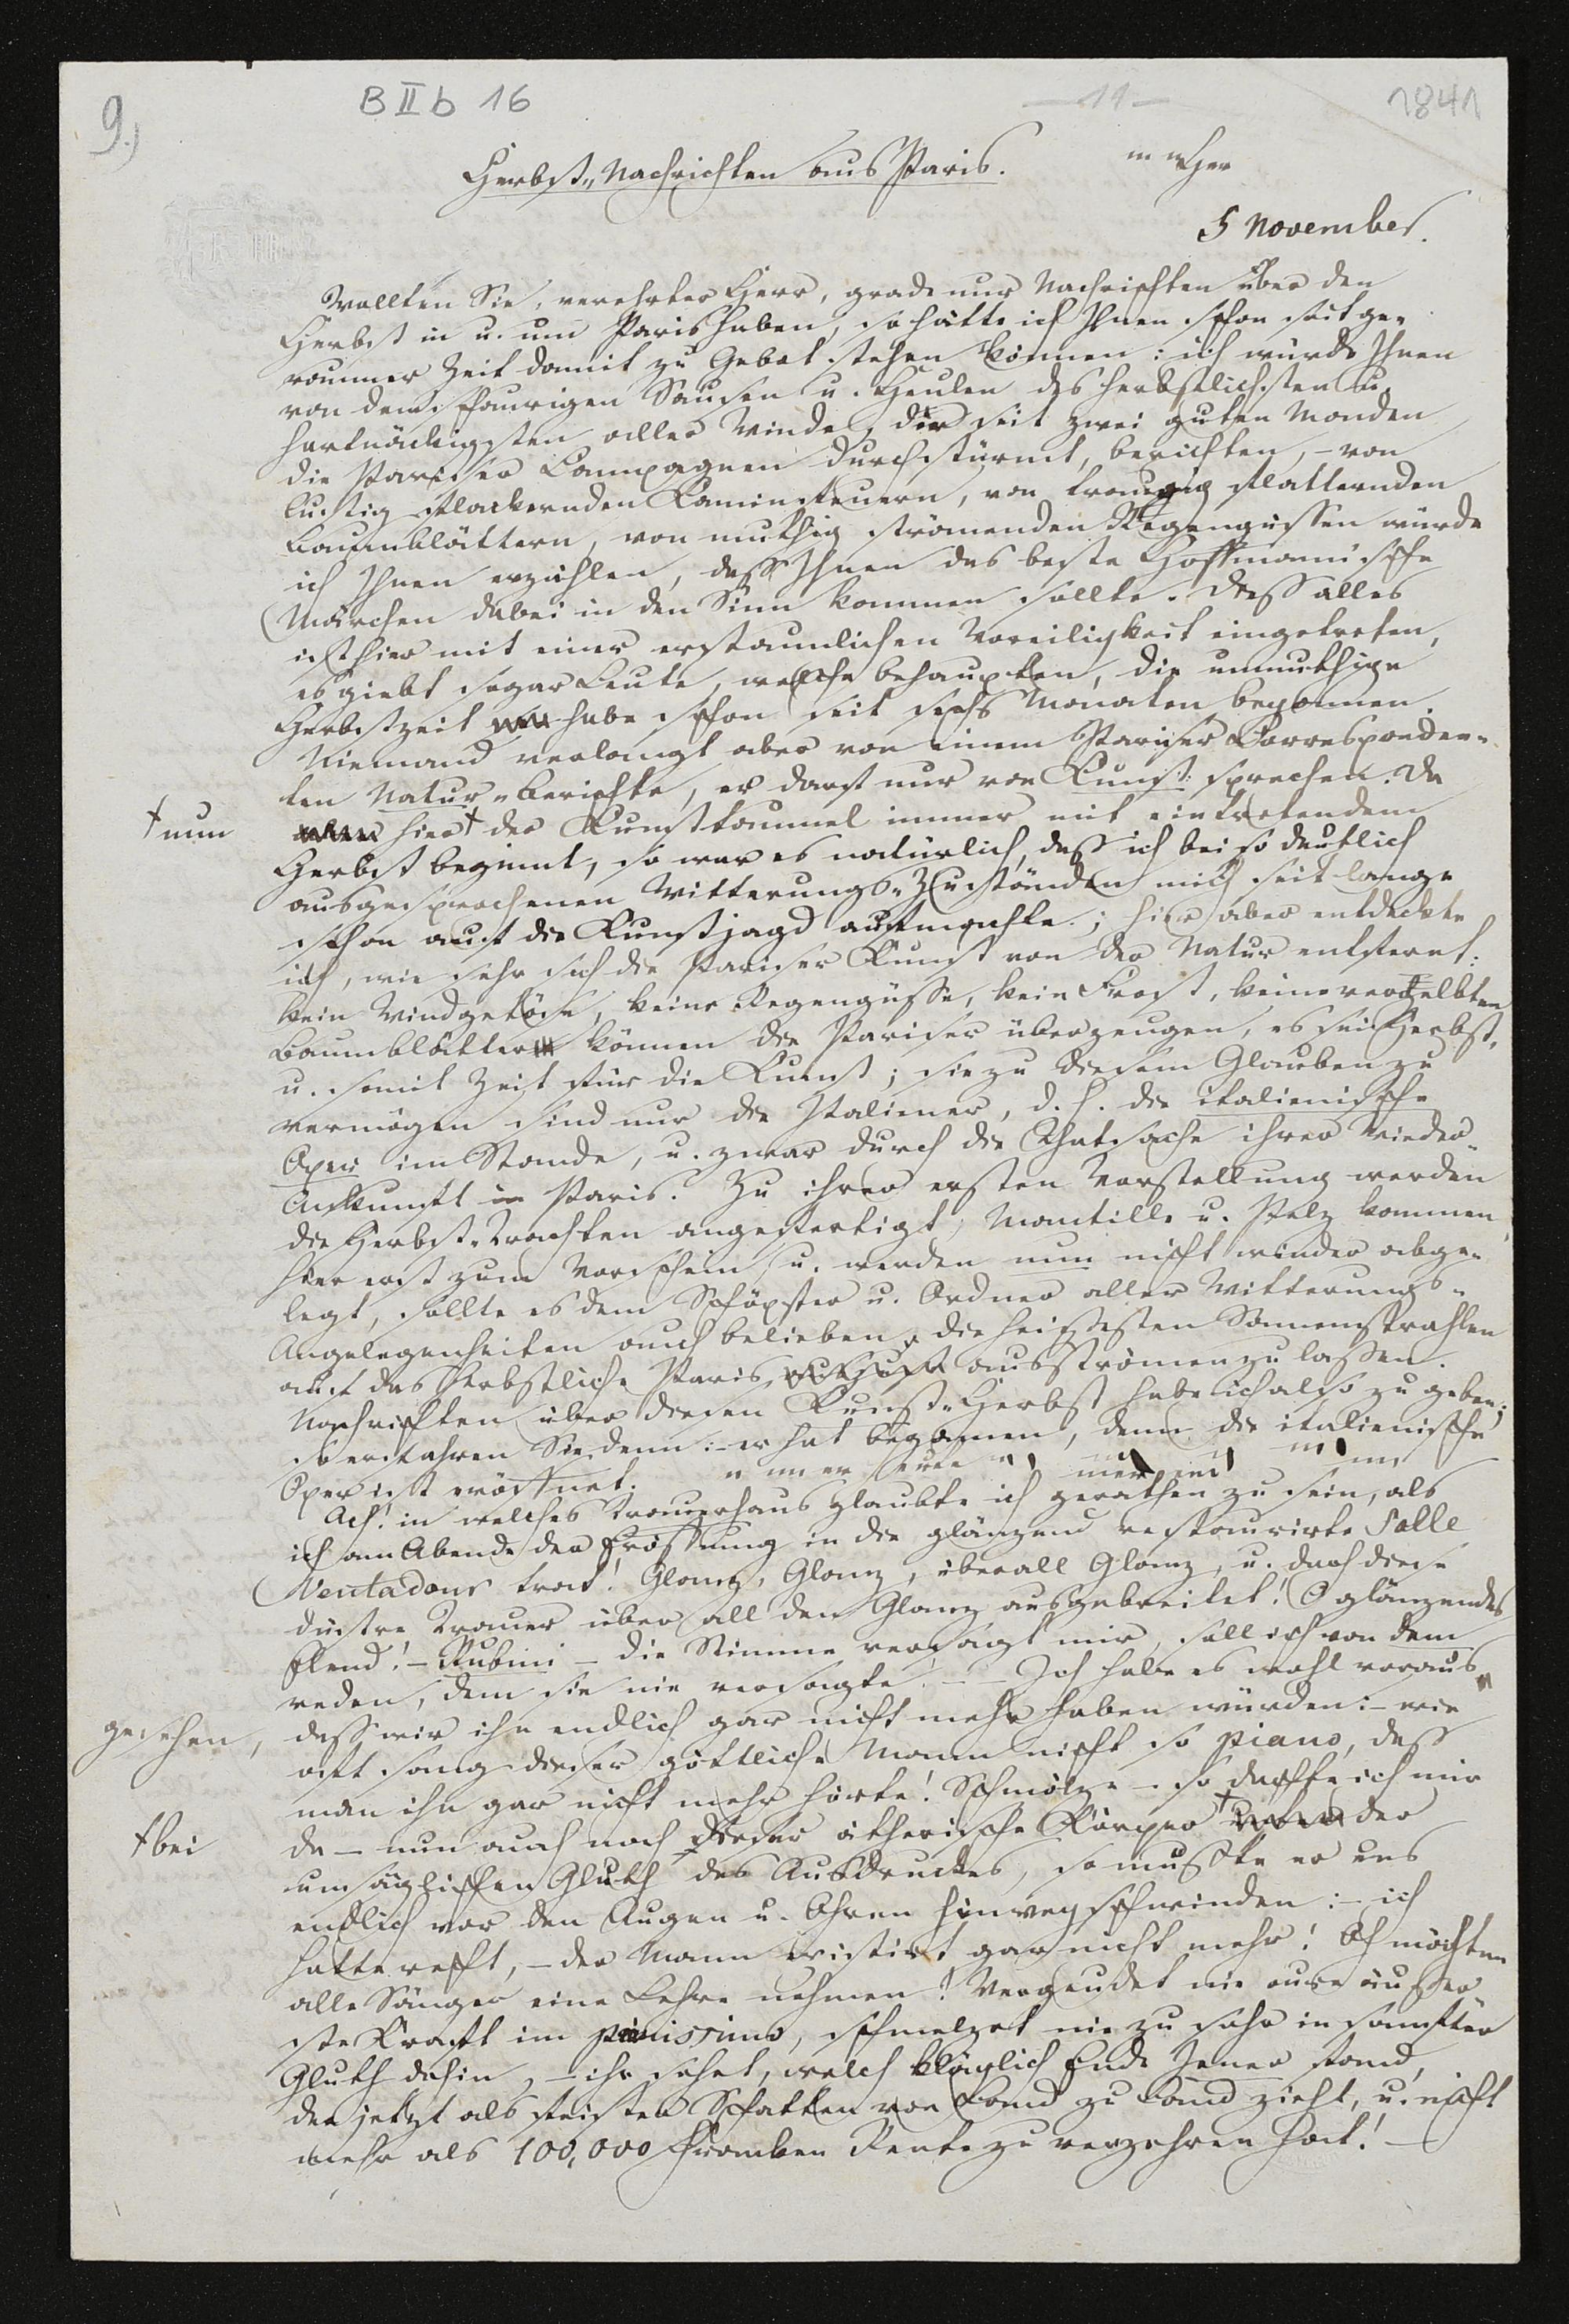 9.)
B II b 16
— 11 —
1841
Herbst-Nachrichten aus Paris.
5 November.
Wollten Sie, verehrter Herr, grade nur Nachrichten über den
Herbst in u. um Paris haben, so hätte ich Ihnen schon seit ge-
raumer Zeit damit zu Gebot stehen können: ich würde Ihnen
von dem schaurigen Sausen u. Heulen des herbstlichsten u.
hartnäckigsten aller Winde, der seit zwei guten Monden
die Pariser Campagnen durchstürmt, berichten, – von
lustig flackernden Kaminfeuern, von traurig flatternden
Baumblättern, von muthig strömenden Regengüssen würde
ich Ihnen erzählen, daß Ihnen das beste Hoffmannische
Märchen dabei in den Sinn kommen sollte. Dieß alles
ist hier mit einer erstaunlichen Voreiligkeit eingetreten,
es giebt sogar Leute, welche behaupten, die unmuthige
Herbstzeit habe schon seit sechs Monaten begonnen.
Niemand verlangt aber von einem Pariser Correspondenn-
ten Natur-Berichte, er darf nur von Kunst sprechen. Da
† nun
hier † der Kunsttaumel immer mit eintretendem
Herbst beginnt, so war es natürlich, daß ich bei so deutlich
ausgesprochenen Witterungs-Zuständen mich seit lange
schon auf die Kunstjagd aufmachte; hier aber entdeckte
ich, wie sehr sich die Pariser Kunst von der Natur entfernt:
kein Windgetöse, keine Regengüsse, kein Frost, keine vergelbten
Baumblätter können die Pariser überzeugen, es sei Herbst,
u. somit Zeit für die Kunst; sie zu diesem Glauben zu
vermögen sind nur die Italiener, d. h. die italienische
Oper im Stande, u. zwar durch die Thatsache ihrer Wieder-
Ankunft in Paris. Zu ihrer ersten Vorstellung werden
die Herbst-Trachten angefertigt; Mantille u. Pelz kommen
hier erst zum Vorschein, u. werden nun nicht wieder abge-
legt, sollte es dem Schöpfer u. Ordner aller Witterungs-
Angelegenheiten auch belieben, die heißesten Sonnenstrahlen
auf das herbstliche Paris ausströmen zu lassen.
Nachrichten über diesen Kunst-Herbst habe ich also zu geben;
so erfahren Sie denn: – er hat begonnen, denn die italienische
Oper ist eröffnet.
Ach! in welches Trauerhaus glaubte ich gerathen zu sein, als
ich am Abende der Eröffnung in die glänzend restaurirte Salle
Ventadour trat! Glanz, Glanz, überall Glanz, u. doch diese
düstre Trauer über all den Glanz ausgebreitet! O glänzendes
Elend! – Rubini – die Stimme versagt mir, soll ich von dem
reden, dem sie nie versagte. – – Ich habe es wohl voraus-
gesehen, daß wir ihn endlich gar nicht mehr haben würden: – wie
oft sang dieser göttliche Mann nicht so piano, daß
man ihn gar nicht mehr hörte! Schmölze – so dachte ich mir
† bei
da – nun auch noch dieser ätherische Körper † der
unsäglichen Gluth des Ausdruckes, so mußte er uns
endlich vor den Augen u. Ohren hinwegschwinden: – ich
hatte recht, – der Mann existirt gar nicht mehr! Ach möchten
alle Sänger eine Lehre nehmen! Vergeudet nie eure äußer-
ste Kraft im pianissimo, schmelzet nie zu sehr in sanfter
Gluth dahin, – ihr sehet, welch kläglich Ende Jener fand,
der jetzt als feister Schatten von Land zu Land zieht, u. nicht
mehr als 100,000 Franken Rente zu verzehren hat! –